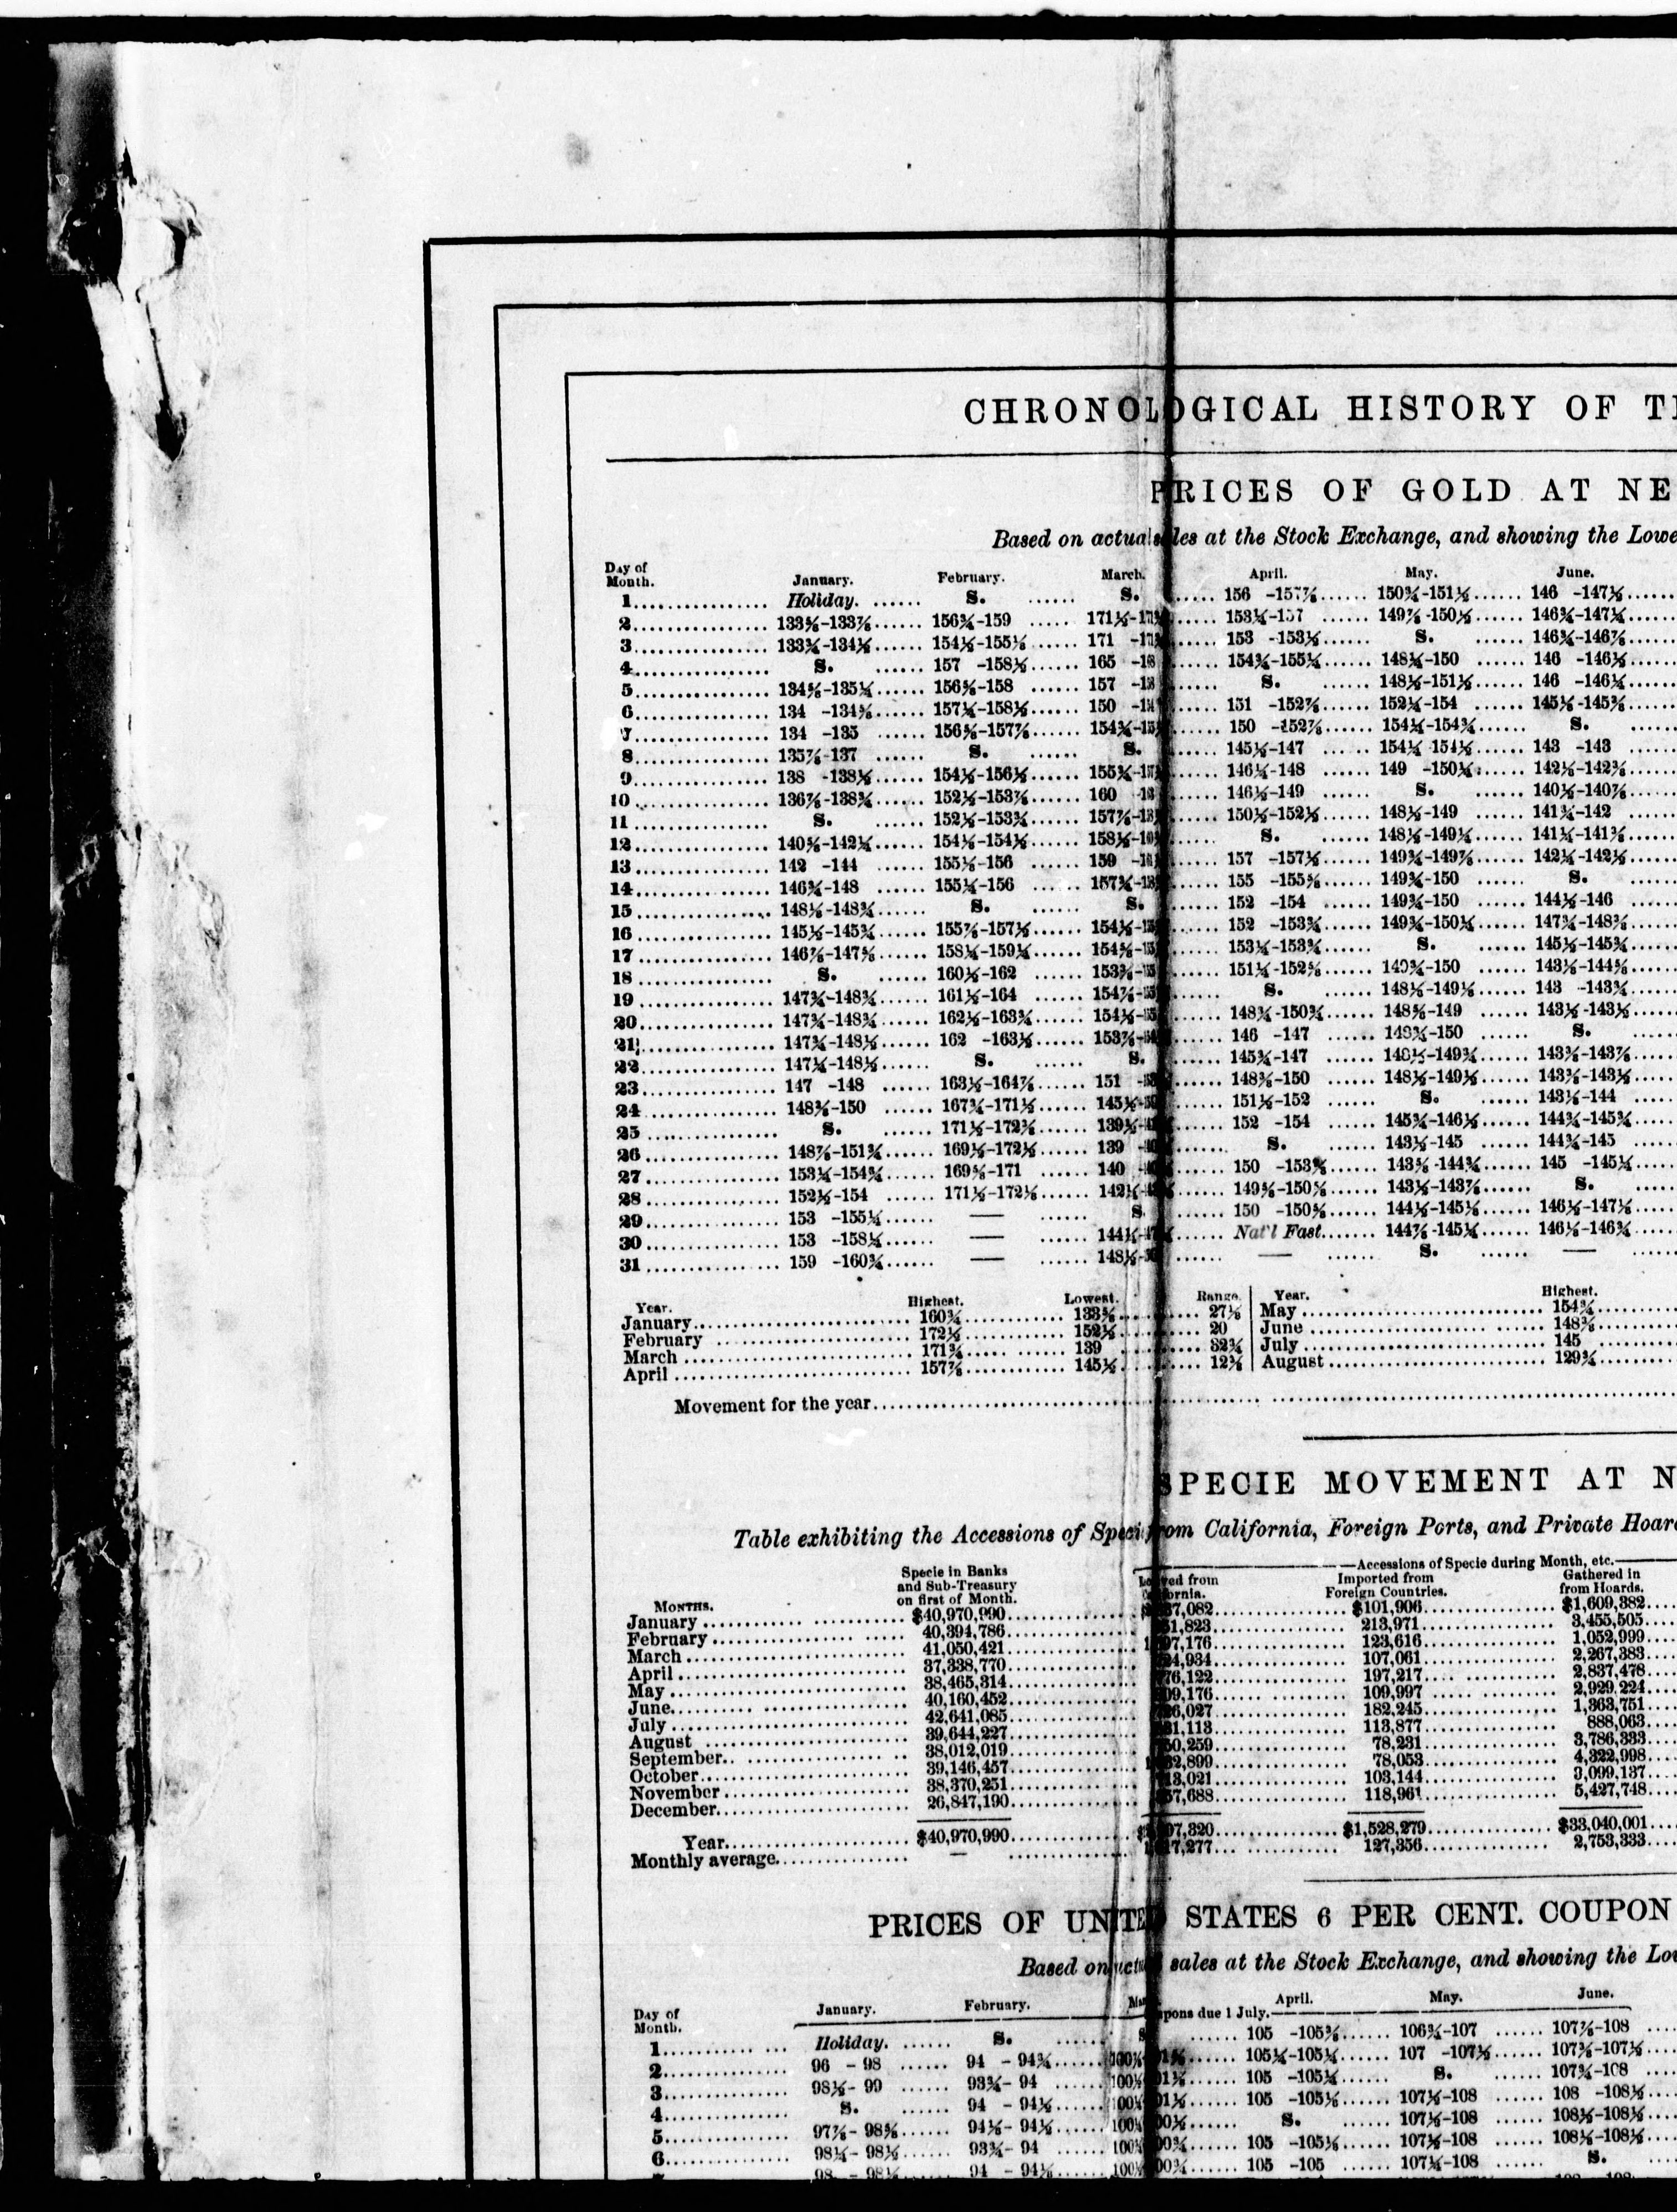 CHRONOLOGICAL HISTORY OF
PRICES OF GOLD AT NE
Based on actual sales at the Stock Exchange, and showing the Lowe
Day of Month. January. February. March. April. May. June.
1 Holiday. S. S. 156 -157⅞ 150¾-151½ 146 -147½
2 133⅝-133⅞ 156¾-159 171½- 153¼-157 149⅞-150½ 146¾-147¼
3 133¾-134½ 154½-155½ 171 153 -153½ S. 146¾-146⅞
4 S. 157 -158½ 165 154¾-155¼ 148¼-150 146 -146½
5 134⅝-135¼ 156⅝-158 157 S. 148½-151½ 146 -146¼
6 134 -134⅝ 157¼-158½ 150 151 -152⅞ 152¼-154 145½-145⅝
7 134 -135 156⅝-157⅞ 154¾- 150 -152⅞ 154¼-154¾ S.
8 135⅞-137 S. S. 145½-147 154¼ 154½ 143 -143
9 138 -138½ 154½-156½ 155¾- 146¼-148 149 -150¼ 142½-142⅜
10 136⅞-138¾ 152½-153⅞ 160 146½-149 S. 140½-140⅞
11 S. 152½-153¾ 157⅞- 150½-152½ 148½-149 141¾-142
12 140⅝-142¼ 154½-154½ 158½- S. 148½-149¼ 141¼-141⅜
13 142 -144 155½-156 159 157 -157½ 149¾-149⅞ 142¼-142½
14 146¾-148 155¼-156 157¾- 155 -155⅝ 149¾-150 S.
15 148½-148¾ S. S. 152 -154 149¾-150 144½-146
16 145½-145¾ 155⅞-157½ 154½- 152 -153¾ 149¾-150¼ 147¾-148⅜
17 146⅞-147⅝ 158¼-159¼ 154⅝- 153¼-153¾ S. 145½-145¾
18 S. 160½-162 153⅝- 151¼-152⅝ 149¾-150 143½-144⅝
19 147¾-148¾ 161½-164 154⅞- S. 148½-149½ 143 -143¾
20 147¾-148¾ 162½-163¾ 154½- 148¾-150¾ 148⅝-149 143½-143½
21 147¾-148½ 162 -163½ 153⅞- 146 -147 149¾-150 S.
22 147¼-148½ S. S. 145¾-147 148½-149¾ 143⅜-143⅞
23 147 -148 163½-164⅞ 151 148⅝-150 148½-149½ 143⅜-143½
24 148⅝-150 167¾-171½ 145½- 151½-152 S. 143½-144
25 S. 171½-172⅜ 139½- 152 -154 145¾-146½ 144¾-145¾
26 148⅞-151¾ 169½-172½ 139 S. 143½-145 144¾-145
27 153¼-154¾ 169⅝-171 140 150 -153¾ 143⅝-144¾ 145 -145¼
28 152½-154 171½-172½ 142½- 149⅝-150⅝ 143½-143⅞ S.
29 153 -155¼ — S. 150 -150⅝ 144½-145½ 146½-147½
30 153 -158¼ — 144¼- Nat'l Fast 144⅞-145¼ 146½-146¾
31 159 -160¾ — 148½- — S. —
Year. Highest. Lowest. Range. Year. Highest.
January 160¾ 133⅝ 27⅛ May 154¾
February 172½ 152½ 20 June 148⅜
March 171¾ 139 32¾ July 145
April 157⅞ 145½ 12⅜ August 129¾
Movement for the year
SPECIE MOVEMENT AT N
Table exhibiting the Accessions of Specie from California, Foreign Ports, and Private Hoar
Accessions of Specie during Month, etc.
MONTHS. Specie in Banks and Sub-Treasury on first of Month. from Imported from Foreign Countries. Gathered in from Hoards.
January $40,970,990 37,082 $101,906 $1,609,382
February 40,394,786 51,823 213,971 3,455,505
March 41,050,421 07,176 123,616 1,052,999
April 37,338,770 24,934 107,061 2,267,383
May 38,465,314 76,122 197,217 2,837,478
June 40,160,452 09,176 109,997 2,929,224
July 42,641,085 26,027 182,245 1,363,751
August 39,644,227 31,113 113,877 888,063
September 38,012,019 50,259 78,231 3,786,333
October 39,146,457 32,899 78,053 4,322,998
November 38,370,251 13,021 103,144 3,099,137
December 26,847,190 57,688 118,961 5,427,748
Year $40,970,990 07,320 $1,528,279 $33,040,001
Monthly average — 7,277 127,356 2,753,333
PRICES OF UNITED STATES 6 PER CENT. COUPON
Based on actual sales at the Stock Exchange, and showing the Lo
Day of Month. January. February. April. May. June.
pons due 1 July.
1 Holiday. S. S 105 -105⅜ 106¾-107 107⅞-108
2 96 - 98 94 - 94¾ 105¼-105¼ 107 -107½ 107⅜-107½
3 98½- 99 93¾- 94 105 -105¼ S. 107¾-108
4 S. 94 - 94½ 105 -105½ 107½-108 108 -108½
5 97⅞- 98⅝ 94½- 94½ S. 107½-108 108½-108½
6 98¼- 98½ 93¾- 94 105 -105½ 107½-108 108½-108½
98 - 98¼ 94 - 94½ 105 -105 107¼-108 S.